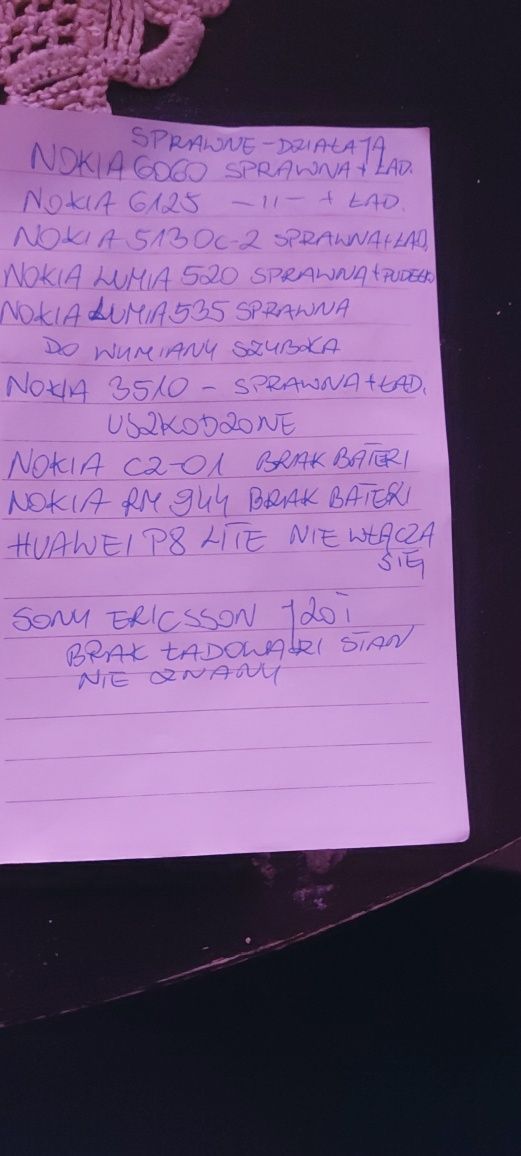 SPRAWNE - DZIAŁAJĄ
NOKIA 6060 SPRAWNA + ŁAD.
NOKIA 6125 -11- + ŁAD.
NOKIA 5130C-2 SPRAWNA + ŁAD,
NOKIA LUMIA 520 SPRAWNA + PUDEŁKO
NOKIA LUMIA 535 SPRAWNA
DO WYMIANY SZYBCKA
NOKIA 3510 - SPRAWNA + ŁAD,
USZKODZONE
NOKIA C2-01 BRAK BATERI
NOKIA RM 944 BRAK BATERI
HUAWEI P8 LITE NIE WŁĄCZA
SIĘ
SONY ERICSSON J20i
BRAK ŁADOWARKI STAN
NIE ZNANY